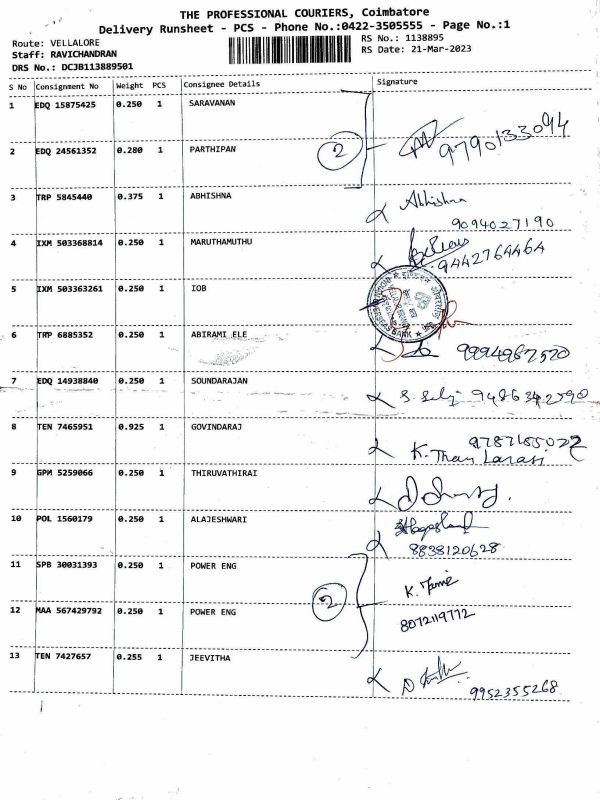 THE PROFESSIONAL COURIERS, Coimbatore
Delivery Runsheet - PCS - Phone No.:0422-3505555 - Page No.:1
Route: VELLALORE
RS No.: 1138895
Staff: RAVICHANDRAN
RS Date: 21-Mar-2023
DRS No.: DCJB113889501
S No Consignment No Weight PCS Consignee Details Signature
1 EDQ 15875425 0.250 1 SARAVANAN
2 EDQ 24561352 0.280 1 PARTHIPAN
2 9790133094
3 TRP 5845440 0.375 1 ABHISHNA Abhishna
9094027190
4 IXM 503368814 0.250 1 MARUTHAMUTHU
9442764464
5 IXM 503363261 0.250 1 IOB
6 TRP 6885352 0.250 1 ABIRAMI ELE
9994967520
7 EDQ 14938840 0.250 1 SOUNDARAJAN
9486342590
8 TEN 7465951 0.925 1 GOVINDARAJ
9787155022
K. Tham Larasi
9 GPM 5259066 0.250 1 THIRUVATHIRAI
10 POL 1560179 0.250 1 ALAJESHWARI
8838120628
11 SPB 30031393 0.250 1 POWER ENG
2
12 MAA 567429792 0.250 1 POWER ENG
8072119772
13 TEN 7427657 0.255 1 JEEVITHA
9952355268